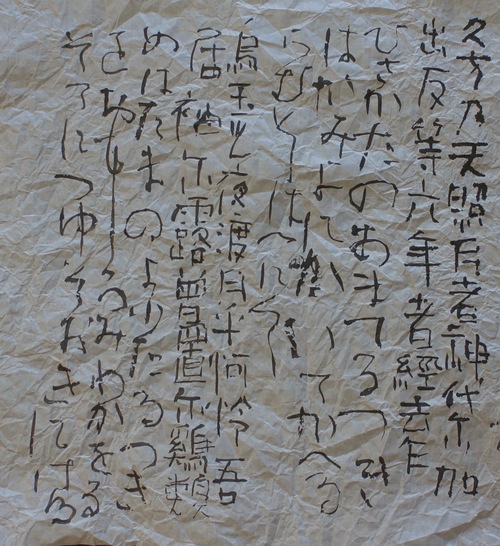 久方乃天照月者神代尓加
出反等六年者經去乍
ひさかたのあまてるつき
はかみよにかいてかへる
らむとしはへにつ〻
烏玉之夜渡月乎𪫧怜吾
居袖尓露曽置尓鷄類
ぬはたまのよわたるつき
をおもしろみわかをる
そてにつゆそおきにける